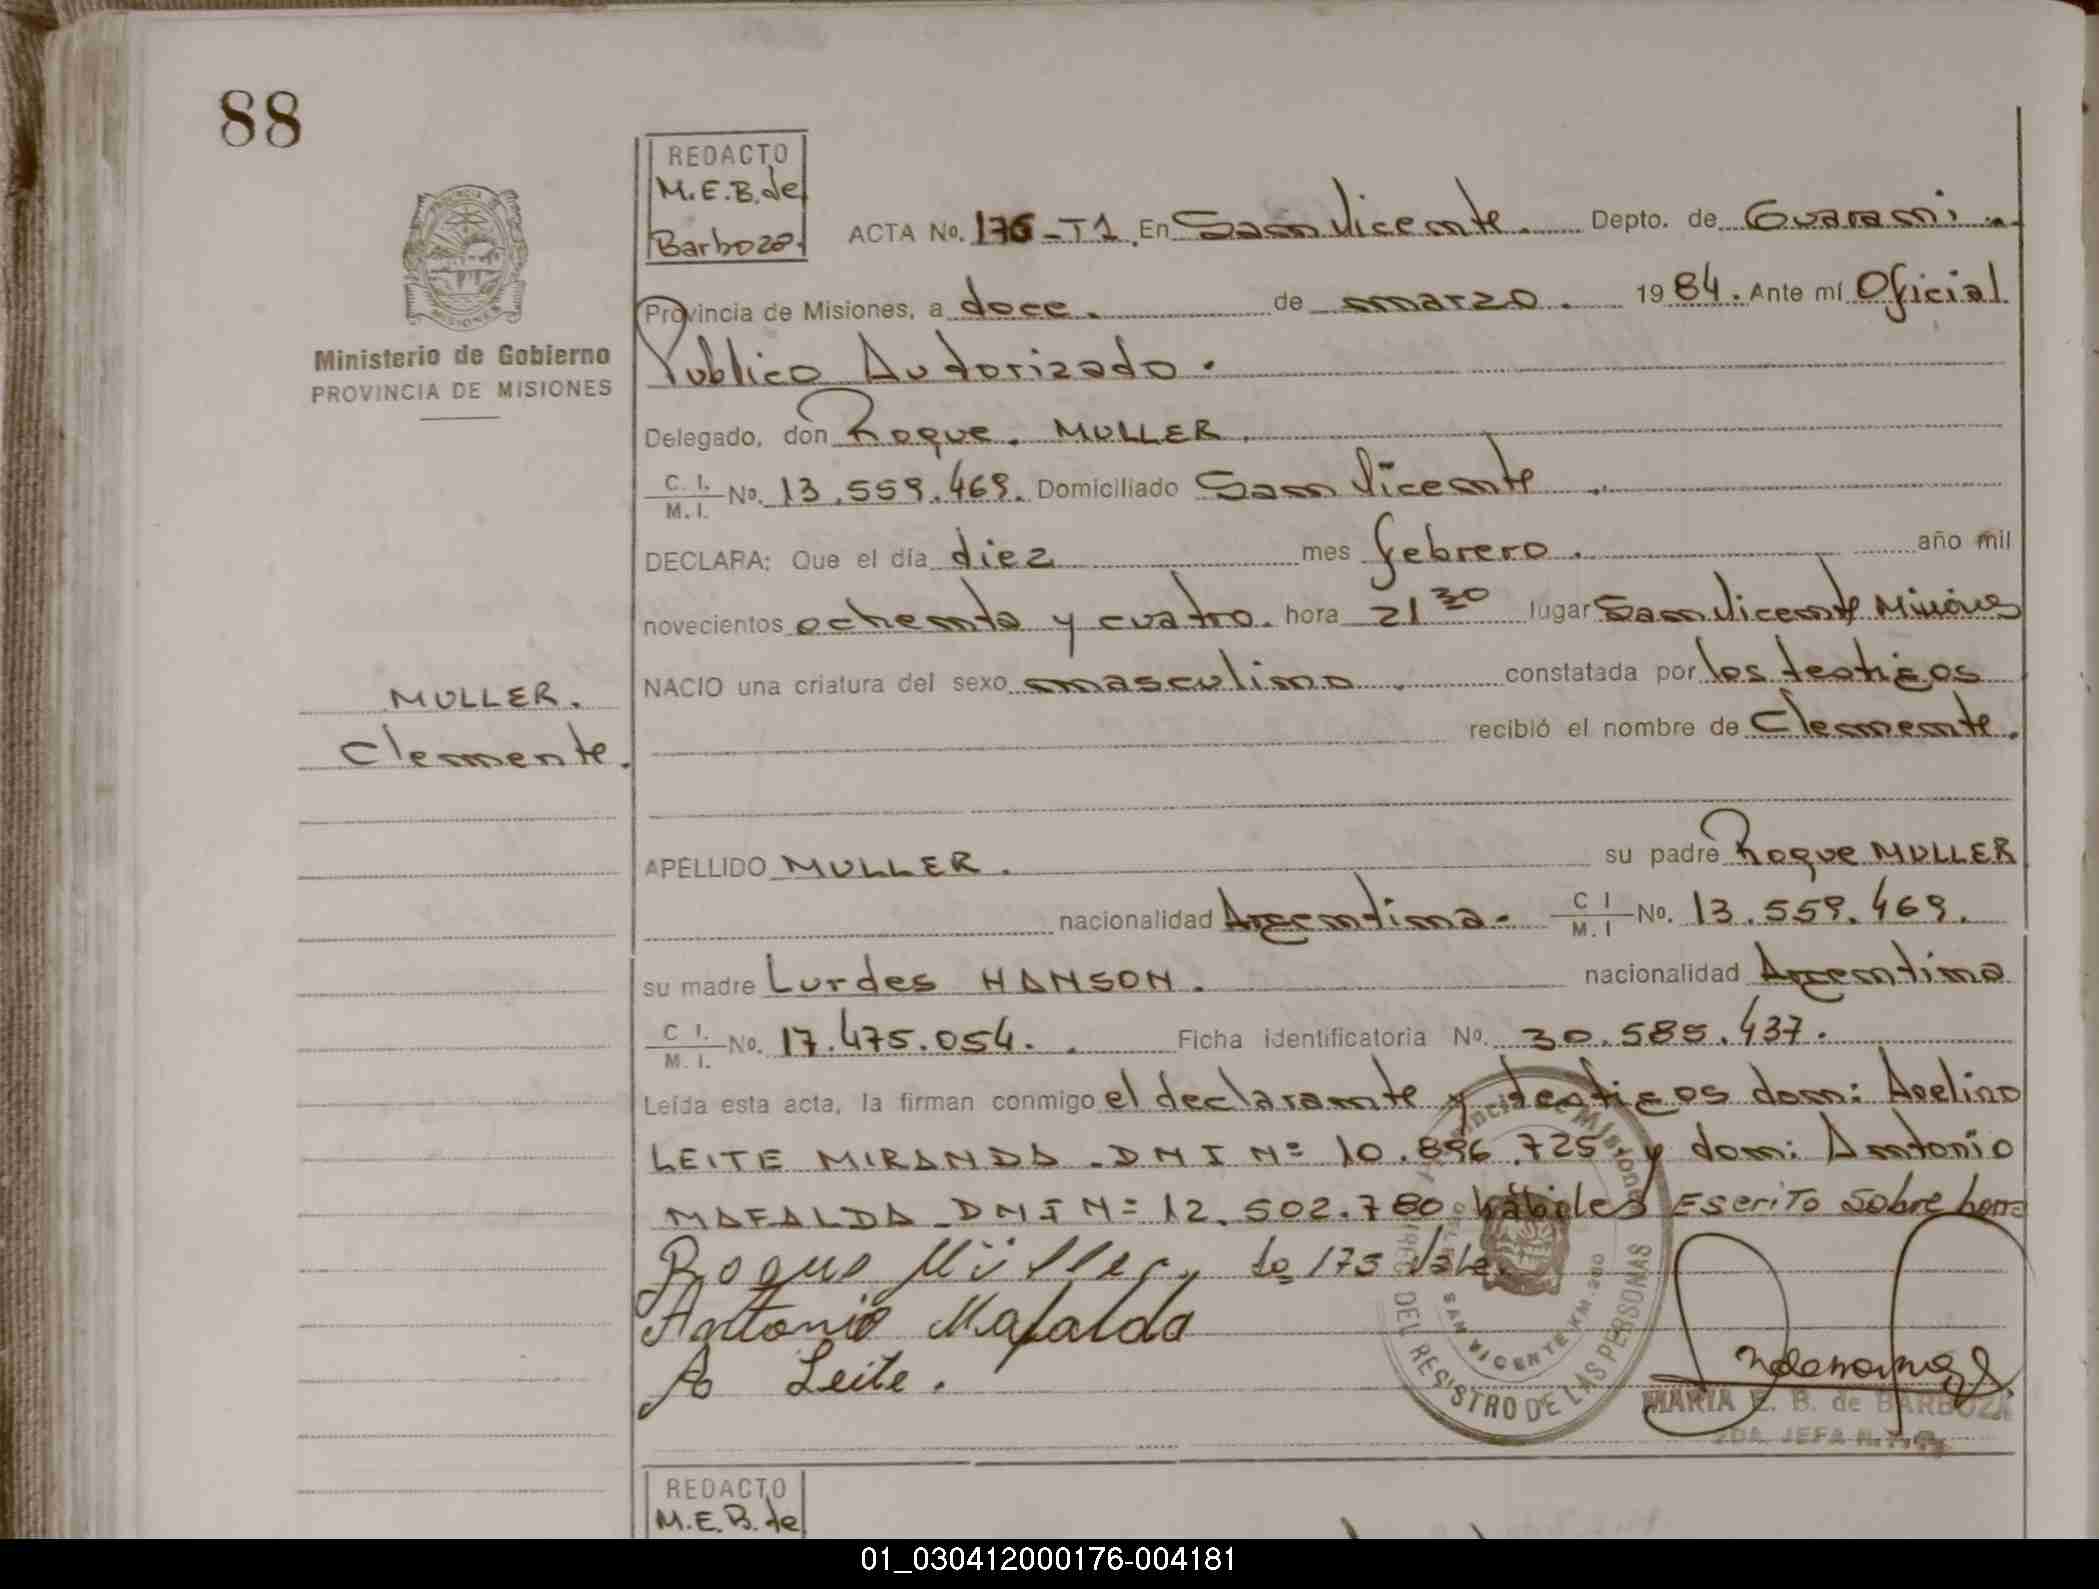 88
REDACTO
M.E.B. de
Barboza.
ACTA No. 176-T1. En San Vicente. Depto. de Guarani.
Provincia de Misiones, a doce. de marzo. 1984. Ante mí Oficial
Publico Autorizado.
Ministerio de Gobierno
PROVINCIA DE MISIONES
Delegado, don Roque. MULLER.
C. I. / M. I. No. 13.559.469. Domiciliado San Vicente.
DECLARA: Que el día diez mes febrero. año mil
novecientos ochenta y cuatro. hora 21 30 lugar San Vicente Misiones
NACIO una criatura del sexo masculino. constatada por los testigos
recibió el nombre de Clemente.
MULLER.
Clemente.
APELLIDO MULLER. su padre Roque MULLER
nacionalidad Argentina. C I / M. I No. 13.559.469.
su madre Lurdes HANSON. nacionalidad Argentina
C I. / M. I. No. 17.475.054. Ficha identificatoria No. 30.585.437.
Leída esta acta, la firman conmigo el declarante y testigos don: Avelino
LEITE MIRANDA. DNI Nº 10.896.725 y don: Antonio
MAFALDA. DNI Nº 12.502.780 habiles Escrito sobre borra
Roque Müller, do 175 Vale.
Antonio Mafalda
A Leite.
DEL REGISTRO DE LAS PERSONAS
SAN VICENTE KM. 280
MARIA E. B. de BARBOZA
2DA. JEFA
REDACTO
M.E.B. de
01_030412000176-004181